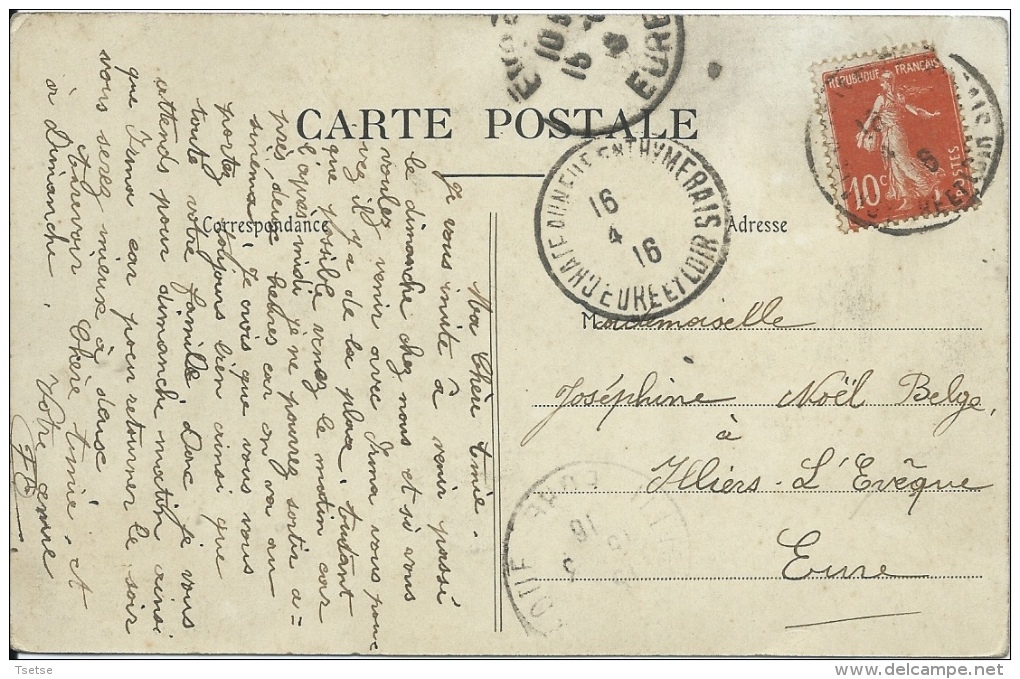 CARTE POSTALE
Correspondance
Adresse
RÉPUBLIQUE FRANÇAISE
10c
POSTES
CHATEAUNEUF EN THYMERAIS
EURE ET LOIR
16
4
16
EURE
Mademoiselle
Joséphine Noël Belge,
à
Illiers-L'Evêque
Eure
Ma Chère Amie.
Je vous invite à venir passé
le dimanche chez nous et si vous
voulez venir avec Irma vous pou=
vez il y a de la place. tantant
que possible venez le matin car
l'apres midi je ne pourrez sortir a=
près, deux heures car on va au
sinema je crois que vous vous
portez toujours bien ainsi que
toute votre famille Donc je vous
attends pour dimanche matin ainsi
que Irma car pour retourner le soir
vous serez mieuse à deuse
Aurevoir Chère Amie. et
à Dimanche.
Votre amie
Tsetse
delcampe.net